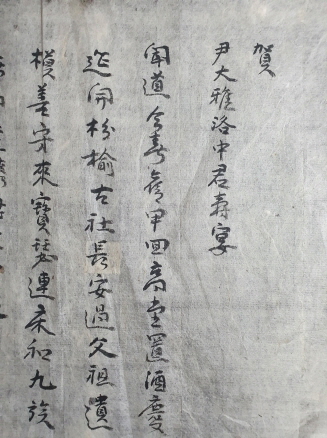 賀
尹大雅洛中君壽宴
聞道今春舊甲回高堂置酒慶
筵開枌榆古社長安過父祖遺
模善守來寶瑟連和九族